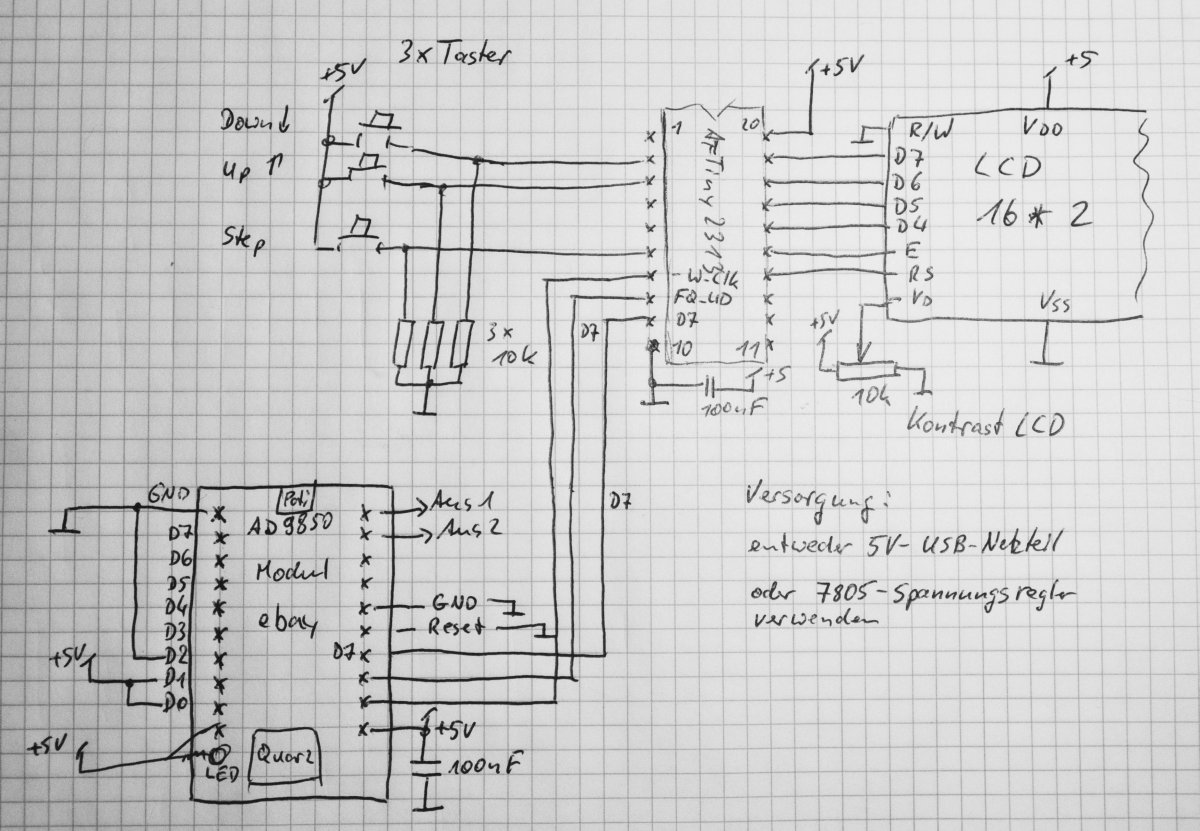 3x Taster
+5V
Down ↓
Up ↑
Step
3x
10k
+5V
1 20
ATTiny 2313
W-Clk
FQ-UD
D7
10 11
D7
+5
100nF
+5
R/W VDD
D7
D6
D5
D4
E
RS
VO
LCD
16*2
VSS
+5V
10k
Kontrast LCD
GND
D7
D6
D5
D4
D3
D2
D1
D0
+5V
+5V
Poti
AD9850
Modul
ebay
D7
Quarz
LED
Aus 1
Aus 2
GND
Reset
D7
+5V
100nF
Versorgung:
entweder 5V-USB-Netzteil
oder 7805-Spannungsregler
verwenden